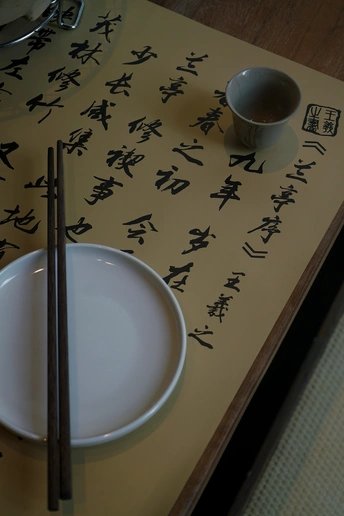 王羲之
《兰亭序》王羲之
九年岁在
春之初会
兰亭修禊事也
少长咸集此地
茂林修竹又
带左